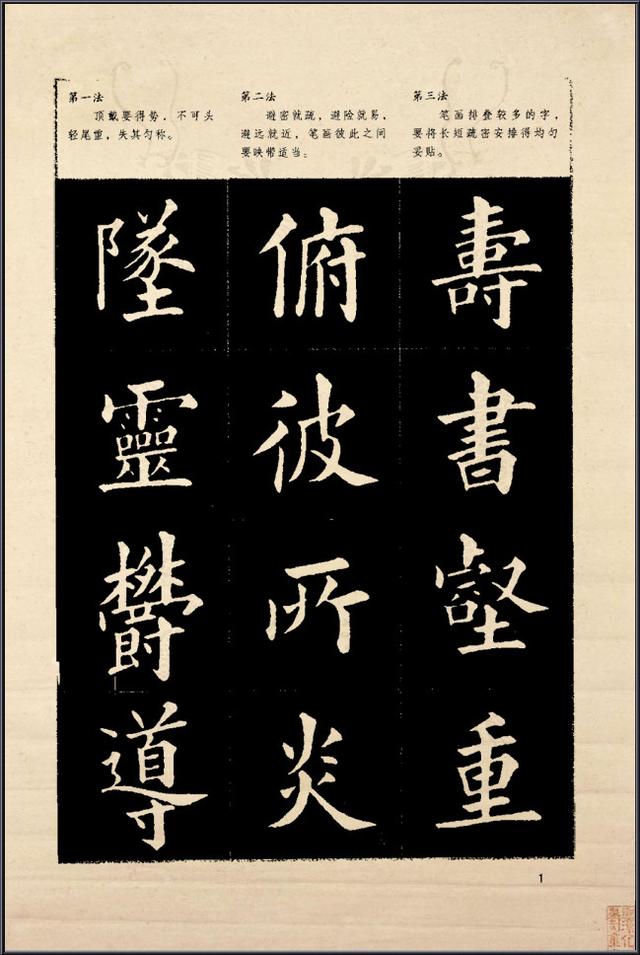 第一法
顶戴要得势，不可头
轻尾重，失其匀称。
第二法
避密就疏，避险就易，
避远就近，笔画彼此之间
要映带适当。
第三法
笔画排叠较多的字，
要将长短疏密安排得均匀
妥贴。
墜
靈
欝
導
俯
彼
所
炎
壽
書
壑
重
1